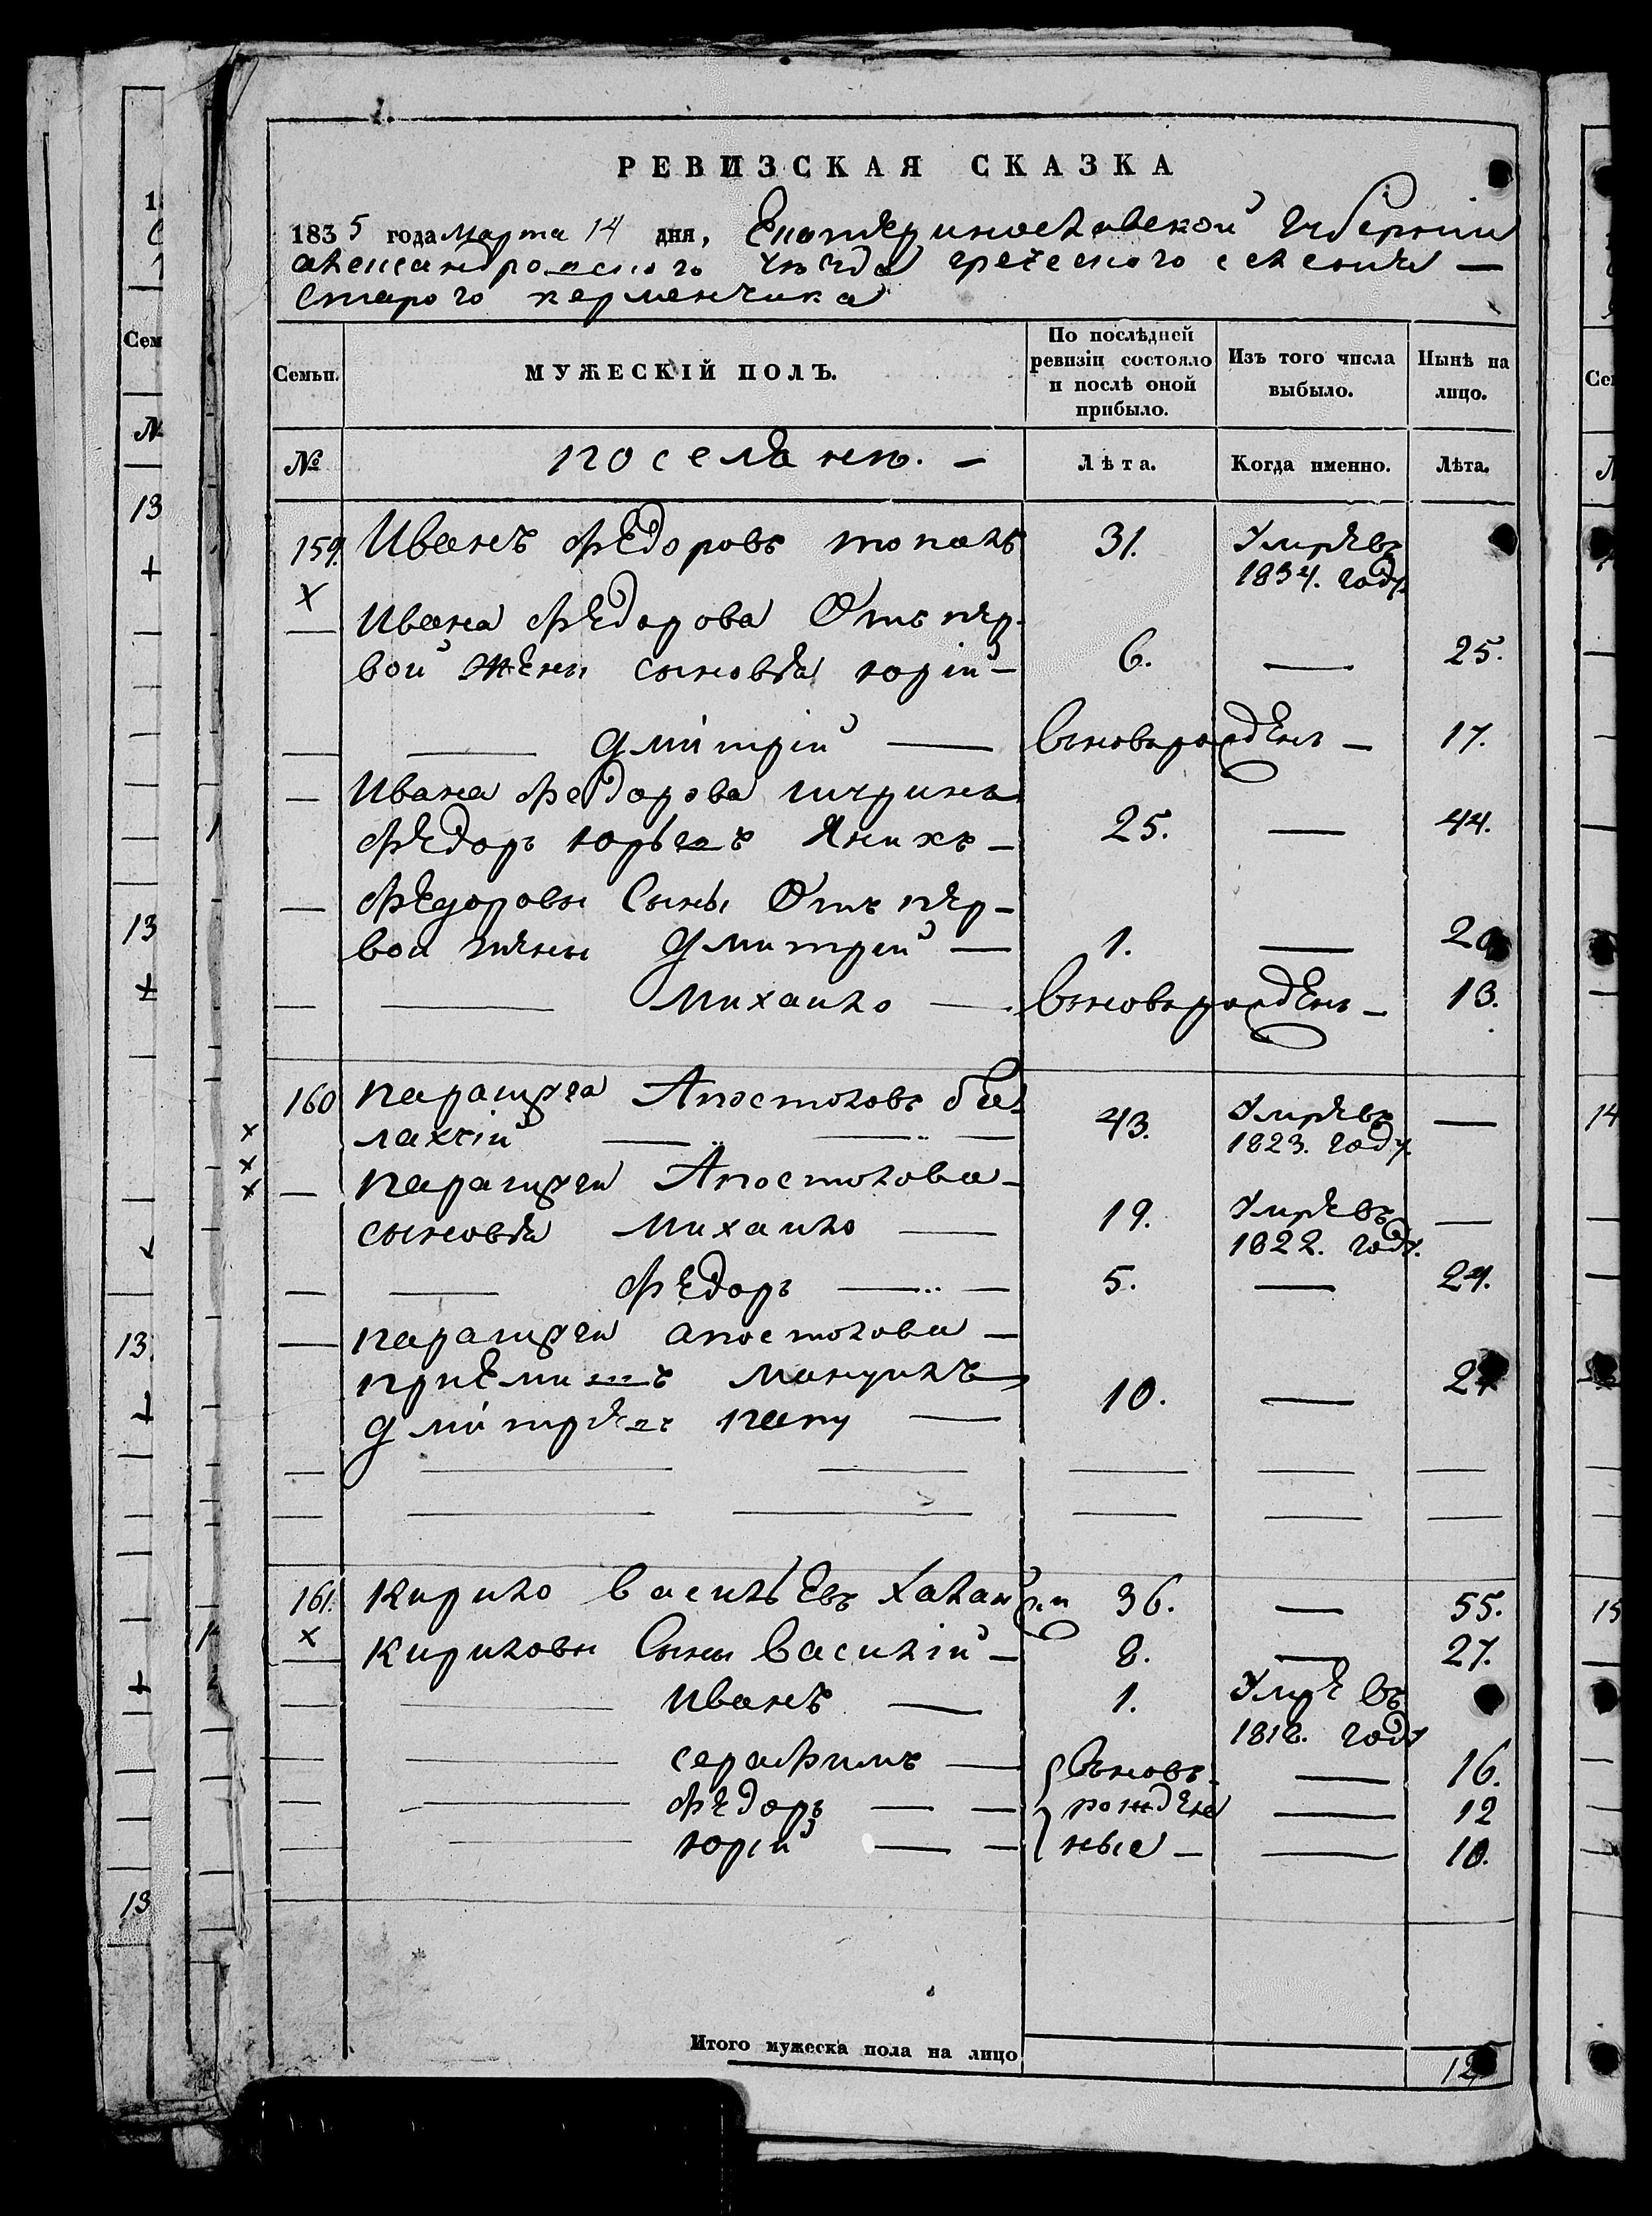 РЕВИЗСКАЯ СКАЗКА
1835 года Марта 14 дня, Екатеринославской Губерніи
александровского уезда греческого селенія —
Старого керменчика
Семьи. МУЖЕСКІЙ ПОЛЪ. По послѣдней ревизіи состояло и послѣ оной прибыло. Изъ того числа выбыло. Нынѣ на лицо.
№ поселянъ. — Лѣта. Когда именно. Лѣта.
159. Иванъ Федоровъ топалъ 31. Умре въ 1834. году
Ивана Федорова Отъ пер-
вой жены сыновья юрій — 6. — 25.
— Дмитрій — вновьрожденъ — 17.
Ивана Федорова шуринъ
Федоръ юрьевъ Янихъ — 25. — 44.
Федоровы Сыны Отъ пер-
вой жены Дмитрій — 1. — 20
— Михаило — вновьрожденъ — 13.
160 парашкева Апостоловъ ба-
лахчій — 43. Умре въ 1823. году. —
парашкеви Апостолова —
сыновья Михаило — 19. Умре въ 1822. году. —
— Федоръ — 5. — 24.
парашкеви апостолова —
приемишъ мануилъ
дмитріевъ папу — 10. — 29
161. Кирило васильевъ Халанжи 36. — 55.
Кириловы Сыны василій — 8. — 27.
— иванъ — 1. Умре въ 1818. году
— серафимъ — вновь — 16.
— Федоръ — рожден — 12
— юрій — ные — — 10.
Итого мужеска пола на лицо 12
13
13
13
13
14
15